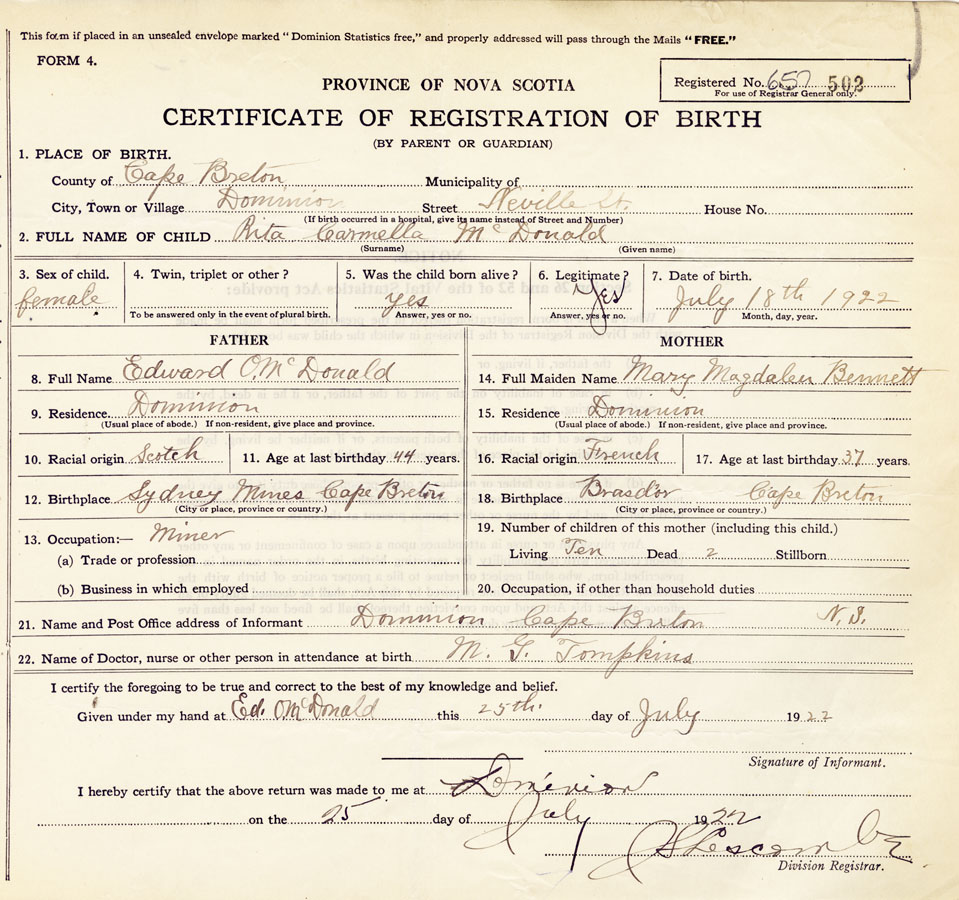 This form if placed in an unsealed envelope marked "Dominion Statistics free," and properly addressed will pass through the Mails "FREE."
FORM 4.
Registered No. 657 502
For use of Registrar General only.
PROVINCE OF NOVA SCOTIA
CERTIFICATE OF REGISTRATION OF BIRTH
(BY PARENT OR GUARDIAN)
1. PLACE OF BIRTH.
County of Cape Breton Municipality of
City, Town or Village Dominion Street Neville St. House No.
(If birth occurred in a hospital, give its name instead of Street and Number)
2. FULL NAME OF CHILD Rita Carmella McDonald
(Surname) (Given name)
3. Sex of child. 4. Twin, triplet or other? 5. Was the child born alive? 6. Legitimate? 7. Date of birth.
female yes Yes July 18th 1922
To be answered only in the event of plural birth. Answer, yes or no. Answer, yes or no. Month, day, year.
FATHER MOTHER
8. Full Name Edward O. McDonald 14. Full Maiden Name Mary Magdalen Bennett
9. Residence. Dominion 15. Residence Dominion
(Usual place of abode.) If non-resident, give place and province. (Usual place of abode.) If non-resident, give place and province.
10. Racial origin Scotch 11. Age at last birthday 44 years. 16. Racial origin French 17. Age at last birthday 37 years.
12. Birthplace Sydney Mines Cape Breton 18. Birthplace Brasd'or Cape Breton
(City or place, province or country.) (City or place, province or country.)
13. Occupation:— Miner 19. Number of children of this mother (including this child.)
(a) Trade or profession Living Ten Dead 2 Stillborn
(b) Business in which employed 20. Occupation, if other than household duties
21. Name and Post Office address of Informant Dominion Cape Breton N.S.
22. Name of Doctor, nurse or other person in attendance at birth M. G. Tompkins
I certify the foregoing to be true and correct to the best of my knowledge and belief.
Given under my hand at Ed. O. McDonald this 25th. day of July 1922
Signature of Informant.
I hereby certify that the above return was made to me at Dominion
on the 25 day of July 1922
Division Registrar.